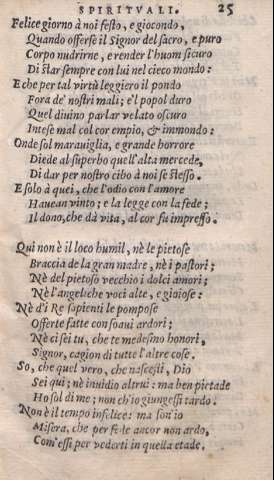 SPIRITVALI. 25
Felice giorno à noi festo, e giocondo,
Quando offerse il Signor del sacro, e puro
Corpo nudrirne, e render l'huom sicuro
Di star sempre con lui nel cieco mondo:
E che per tal virtù leggiero il pondo
Fora de' nostri mali; e'l popol duro
Quel diuino parlar velato oscuro
Intese mal col cor empio, & immondo:
Onde sol marauiglia, e grande horrore
Diede al superbo quell'alta mercede,
Di dar per nostro cibo à noi se stesso.
E solo à quei, che l'odio con l'amore
Hauean vinto; e la legge con la fede;
Il dono, che dà vita, al cor fu impresso.
Qui non è il loco humil, nè le pietose
Braccia de la gran madre, nè i pastori;
Nè del pietoso vecchio i dolci amori;
Nè l'angeliche voci alte, e gioiose:
Nè d'i Re sapienti le pompose
Offerte fatte con soaui ardori;
Nè ci sei tu, che te medesmo honori,
Signor, cagion di tutte l'altre cose.
So, che quel vero, che nascesti, Dio
Sei quì; nè inuidio altrui: ma ben pietade
Ho sol di me; non ch'io giungessi tardo.
Non è il tempo infelice: ma son'io
Misera, che per fede ancor non ardo,
Com'essi per vederti in quella etade.